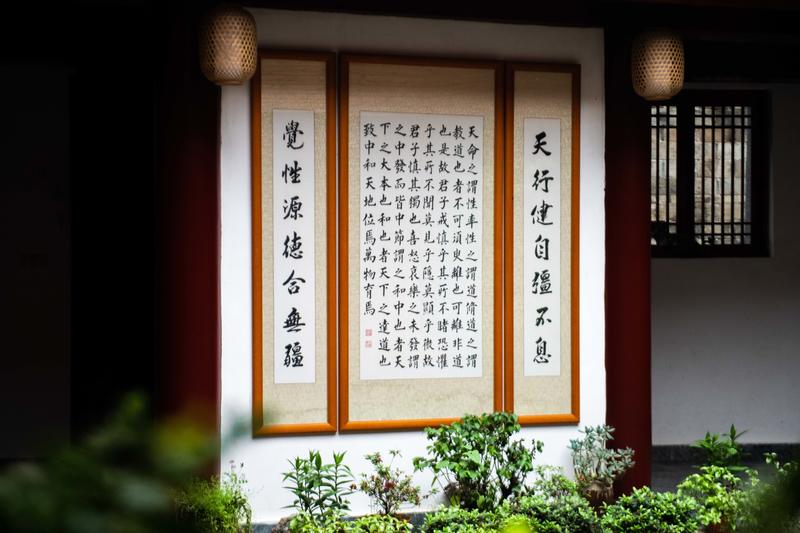 天行健自彊不息
天命之謂性率性之謂道脩道之謂
教道也者不可須臾離也可離非道
也是故君子戒慎乎其所不睹恐懼
乎其所不聞莫見乎隱莫顯乎微故
君子慎其獨也喜怒哀樂之未發謂
之中發而皆中節謂之和中也者天
下之大本也和也者天下之達道也
致中和天地位焉萬物育焉
覺性源德合無疆